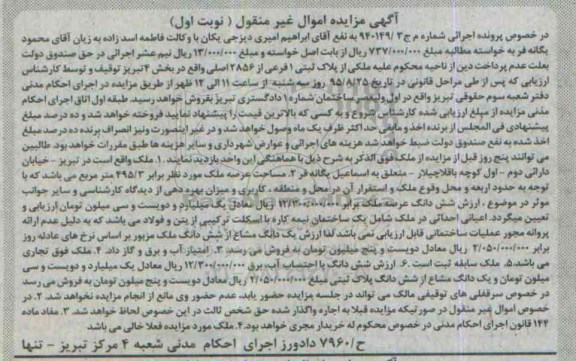 آگهی مزایده اموال غیر منقول ( نوبت اول)
در خصوص پرونده اجرائی شماره م ج۳ ۹۴۰۱۴۹/ به نفع آقای ابراهیم امیری دیزجی یکان با وکالت فاطمه اسد زاده به زیان آقای محمود
یگانه فر به خواسته مطالبه مبلغ ۷۳۷/۰۰۰/۰۰۰ ریال از بابت اصل خواسته و مبلغ ۱۳/۰۰۰/۰۰۰ ریال نیم عشر اجرائی در حق صندوق دولت
بعلت عدم پرداخت دین از ناحیه محکوم علیه ملکی از پلاک ثبتی ۱ فرعی از ۲۸۵۶ اصلی واقع در بخش ۴ تبریز توقیف و توسط کارشناس
ارزیابی که پس از طی مراحل قانونی در تاریخ ۹۵/۸/۲۵ روز سه شنبه از ساعت ۱۱ الی ۱۲ ظهر از طریق مزایده در اجرای احکام مدنی
دفتر شعبه سوم حقوقی تبریز واقع در اول ولیعصر ساختمان شماره ۱ دادگستری تبریز بفروش خواهد رسید. طبقه اول اتاق اجرای احکام
مدنی مزایده از مبلغ ارزیابی شده کارشناس شروع و به کسی که بالاترین قیمت را پیشنهاد نمایید فروخته خواهد شد و ده درصد مبلغ
پیشنهادی فی المجلس از برنده اخذ و مابقی حداکثر ظرف یک ماه وصول خواهد شد و در غیر اینصورت ونیز انصراف برنده ده درصد مبلغ
اخذ شده به نفع صندوق دولت ضبط خواهد شد هزینه های اجرائی و عوارض شهرداری و سایر هزینه ها طبق مقررات خواهد بود. طالبین
می توانند پنج روز قبل از مزایده از ملک فوق الذکر به شرح ذیل با هماهنگی این واحد بازدید نمایند. ۱. ملک واقع است در تبریز - خیابان
دارائی دوم - اول کوچه باقلاچیلار - متعلق به اسماعیل یگانه فر ۲. مساحت عرصه ملک مورد نظر برابر ۴۹۵/۳ متر مربع می باشد که با
توجه به حدود اربعه و محل وقوع ملک و استقرار آن در محل و منطقه ، کاربری و میزان بهره دهی از دیدگاه کارشناسی و سایر جوانب
موثر در موضوع ، ارزش شش دانگ عرصه ملک برابر ۱۲/۳۰۰/۰۰۰/۰۰۰ ریال معادل یک میلیارد و دویست و سی میلیون تومان ارزیابی و
تعیین میگردد. اعیانی احداثی در ملک شامل یک ساختمان نیمه کاره با اسکلت ترکیبی از بتن و فولاد می باشد که به دلیل عدم ارائه
پروانه مجوز عملیات ساختمانی قابل ارزیابی نمی باشد لذا ارزش یک دانگ مشاع از شش دانگ ملک مزبور بر اساس نرخ های عادله روز
برابر ۲/۰۵۰/۰۰۰/۰۰۰ ریال معادل دویست و پنج میلیون تومان به فروش می رسد. ۳. امتیاز آب و برق و گاز داد. ۴. ملک فوق تجاری
می باشد. ۵. ملک سابقه ثبت است .۶. ارزش شش دانگ با احتساب آب، برق ۱۲/۳۰۰/۰۰۰/۰۰۰ ریال معادل یک میلیارد و دویست و سی
میلیون تومان و یک دانگ مشاع از شش دانگ پلاک ثبتی مبلغ ۲/۰۵۰/۰۰۰/۰۰۰ ریال معادل دویست و پنج میلیون تومان به فروش می رسد
در خصوص سرقفلی های توقیفی مالک می تواند در جلسه مزایده حضور یابد. عدم حضور وی مانع از انجام مزایده نخواهد شد. ۲. در
خصوص اموال غیر منقول در صورتیکه مزایده قبلا به اجاره واگذار شده حق شخص ثالث در این خصوص لحاظ خواهد شد. ۳. مفاد ماده
۱۴۴ قانون اجرای احکام مدنی در خصوص محکوم له خریدار مجری خواهد بود. ۴. ملک مورد مزایده فعلا خالی می باشد
ح/۷۹۶۰ دادورز اجرای احکام مدنی شعبه ۴ مرکز تبریز - تنها